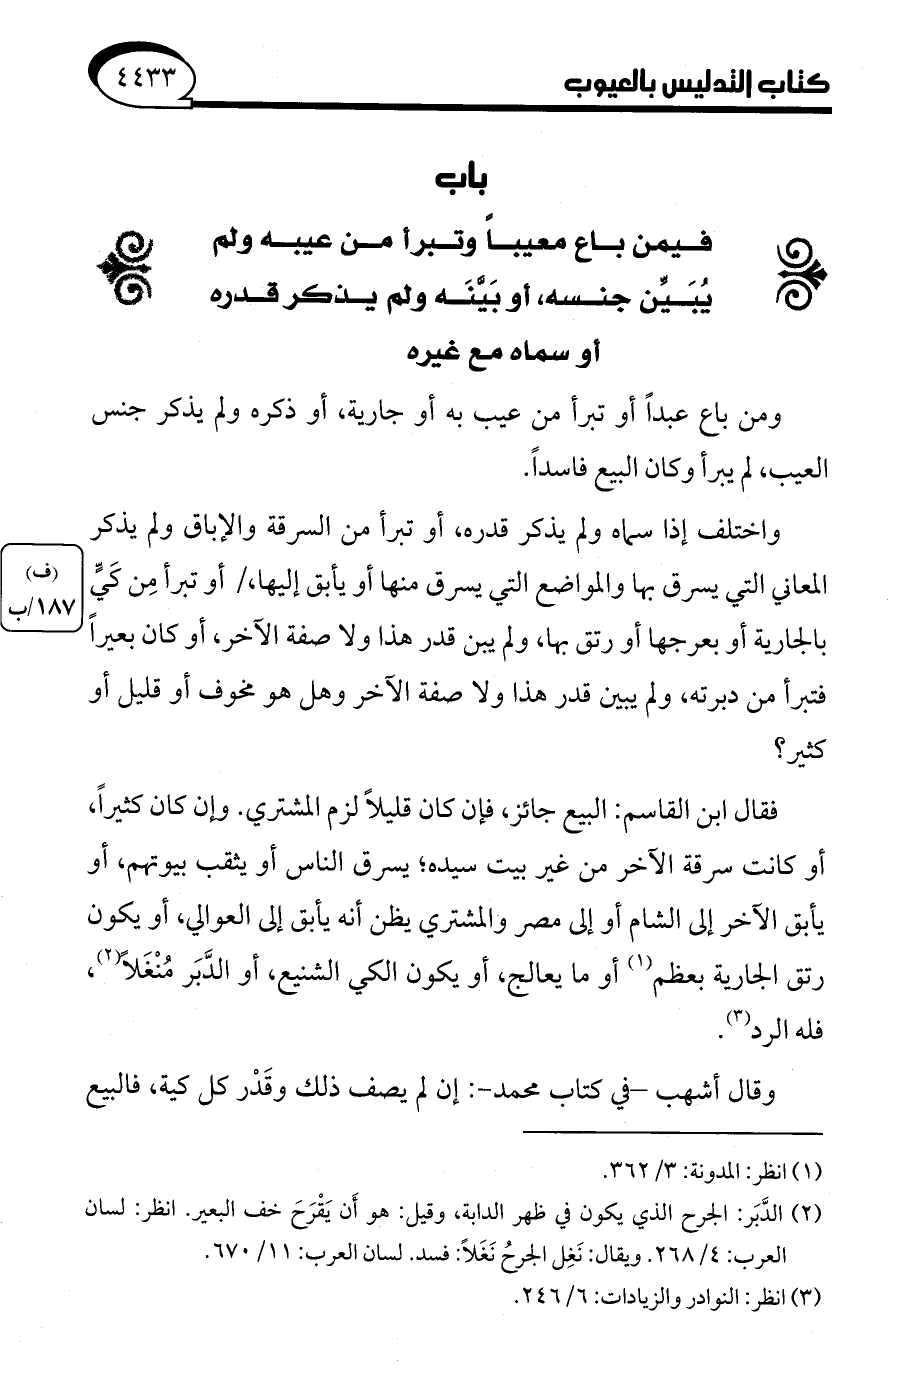 كتاب التدليس بالعيوب
٤٤٣٣
باب
فيمن باع معيباً وتبرأ من عيبه ولم
يُبَيِّن جنسه، أو بَيَّنَه ولم يذكر قدره
أو سماه مع غيره
ومن باع عبداً أو تبرأ من عيب به أو جارية، أو ذكره ولم يذكر جنس
العيب، لم يبرأ وكان البيع فاسداً.
واختلف إذا سماه ولم يذكر قدره، أو تبرأ من السرقة والإباق ولم يذكر
المعاني التي يسرق بها والمواضع التي يسرق منها أو يأبق إليها،/ أو تبرأ مِن كَيٍّ
(ف)
١٨٧/ب
بالجارية أو بعرجها أو رتق بها، ولم يبن قدر هذا ولا صفة الآخر، أو كان بعيراً
فتبرأ من دبرته، ولم يبين قدر هذا ولا صفة الآخر وهل هو مخوف أو قليل أو
كثير؟
فقال ابن القاسم: البيع جائز، فإن كان قليلاً لزم المشتري. وإن كان كثيراً،
أو كانت سرقة الآخر من غير بيت سيده؛ يسرق الناس أو يثقب بيوتهم، أو
يأبق الآخر إلى الشام أو إلى مصر والمشتري يظن أنه يأبق إلى العوالي، أو يكون
رتق الجارية بعظم(١) أو ما يعالج، أو يكون الكي الشنيع، أو الدَّبَر مُنْغَلاً(٢)،
فله الرد(٣).
وقال أشهب -في كتاب محمد-: إن لم يصف ذلك وقَدْر كل كية، فالبيع
(١) انظر: المدونة: ٣/ ٣٦٢.
(٢) الدَّبَر: الجرح الذي يكون في ظهر الدابة، وقيل: هو أَن يَقْرَحَ خف البعير. انظر: لسان
العرب: ٤/ ٢٦٨. ويقال: نَغِل الجرحُ نَغَلاً: فسد. لسان العرب: ١١/ ٦٧٠.
(٣) انظر: النوادر والزيادات: ٦/ ٢٤٦.